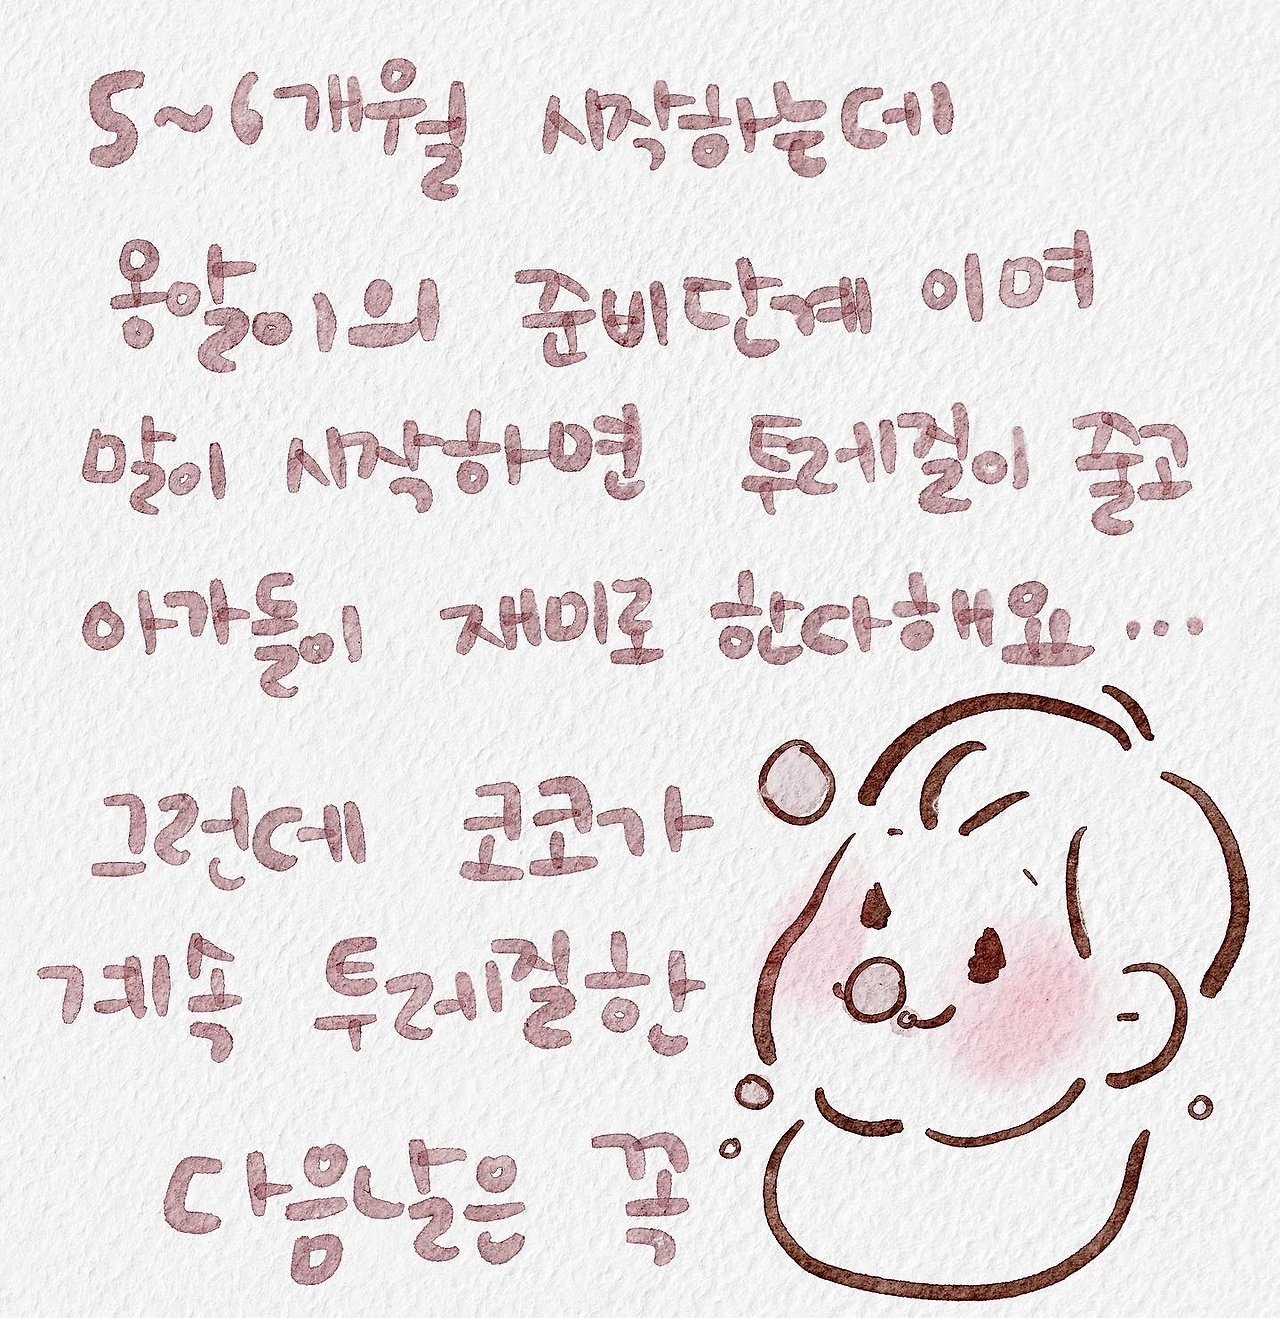 5~6개월 시작하는데
옹알이의 준비단계 이며
말이 시작하면 투레질이 줄고
아가들이 재미로 한다해요...
그런데 코코가
계속 투레질한
다음날은 꼭